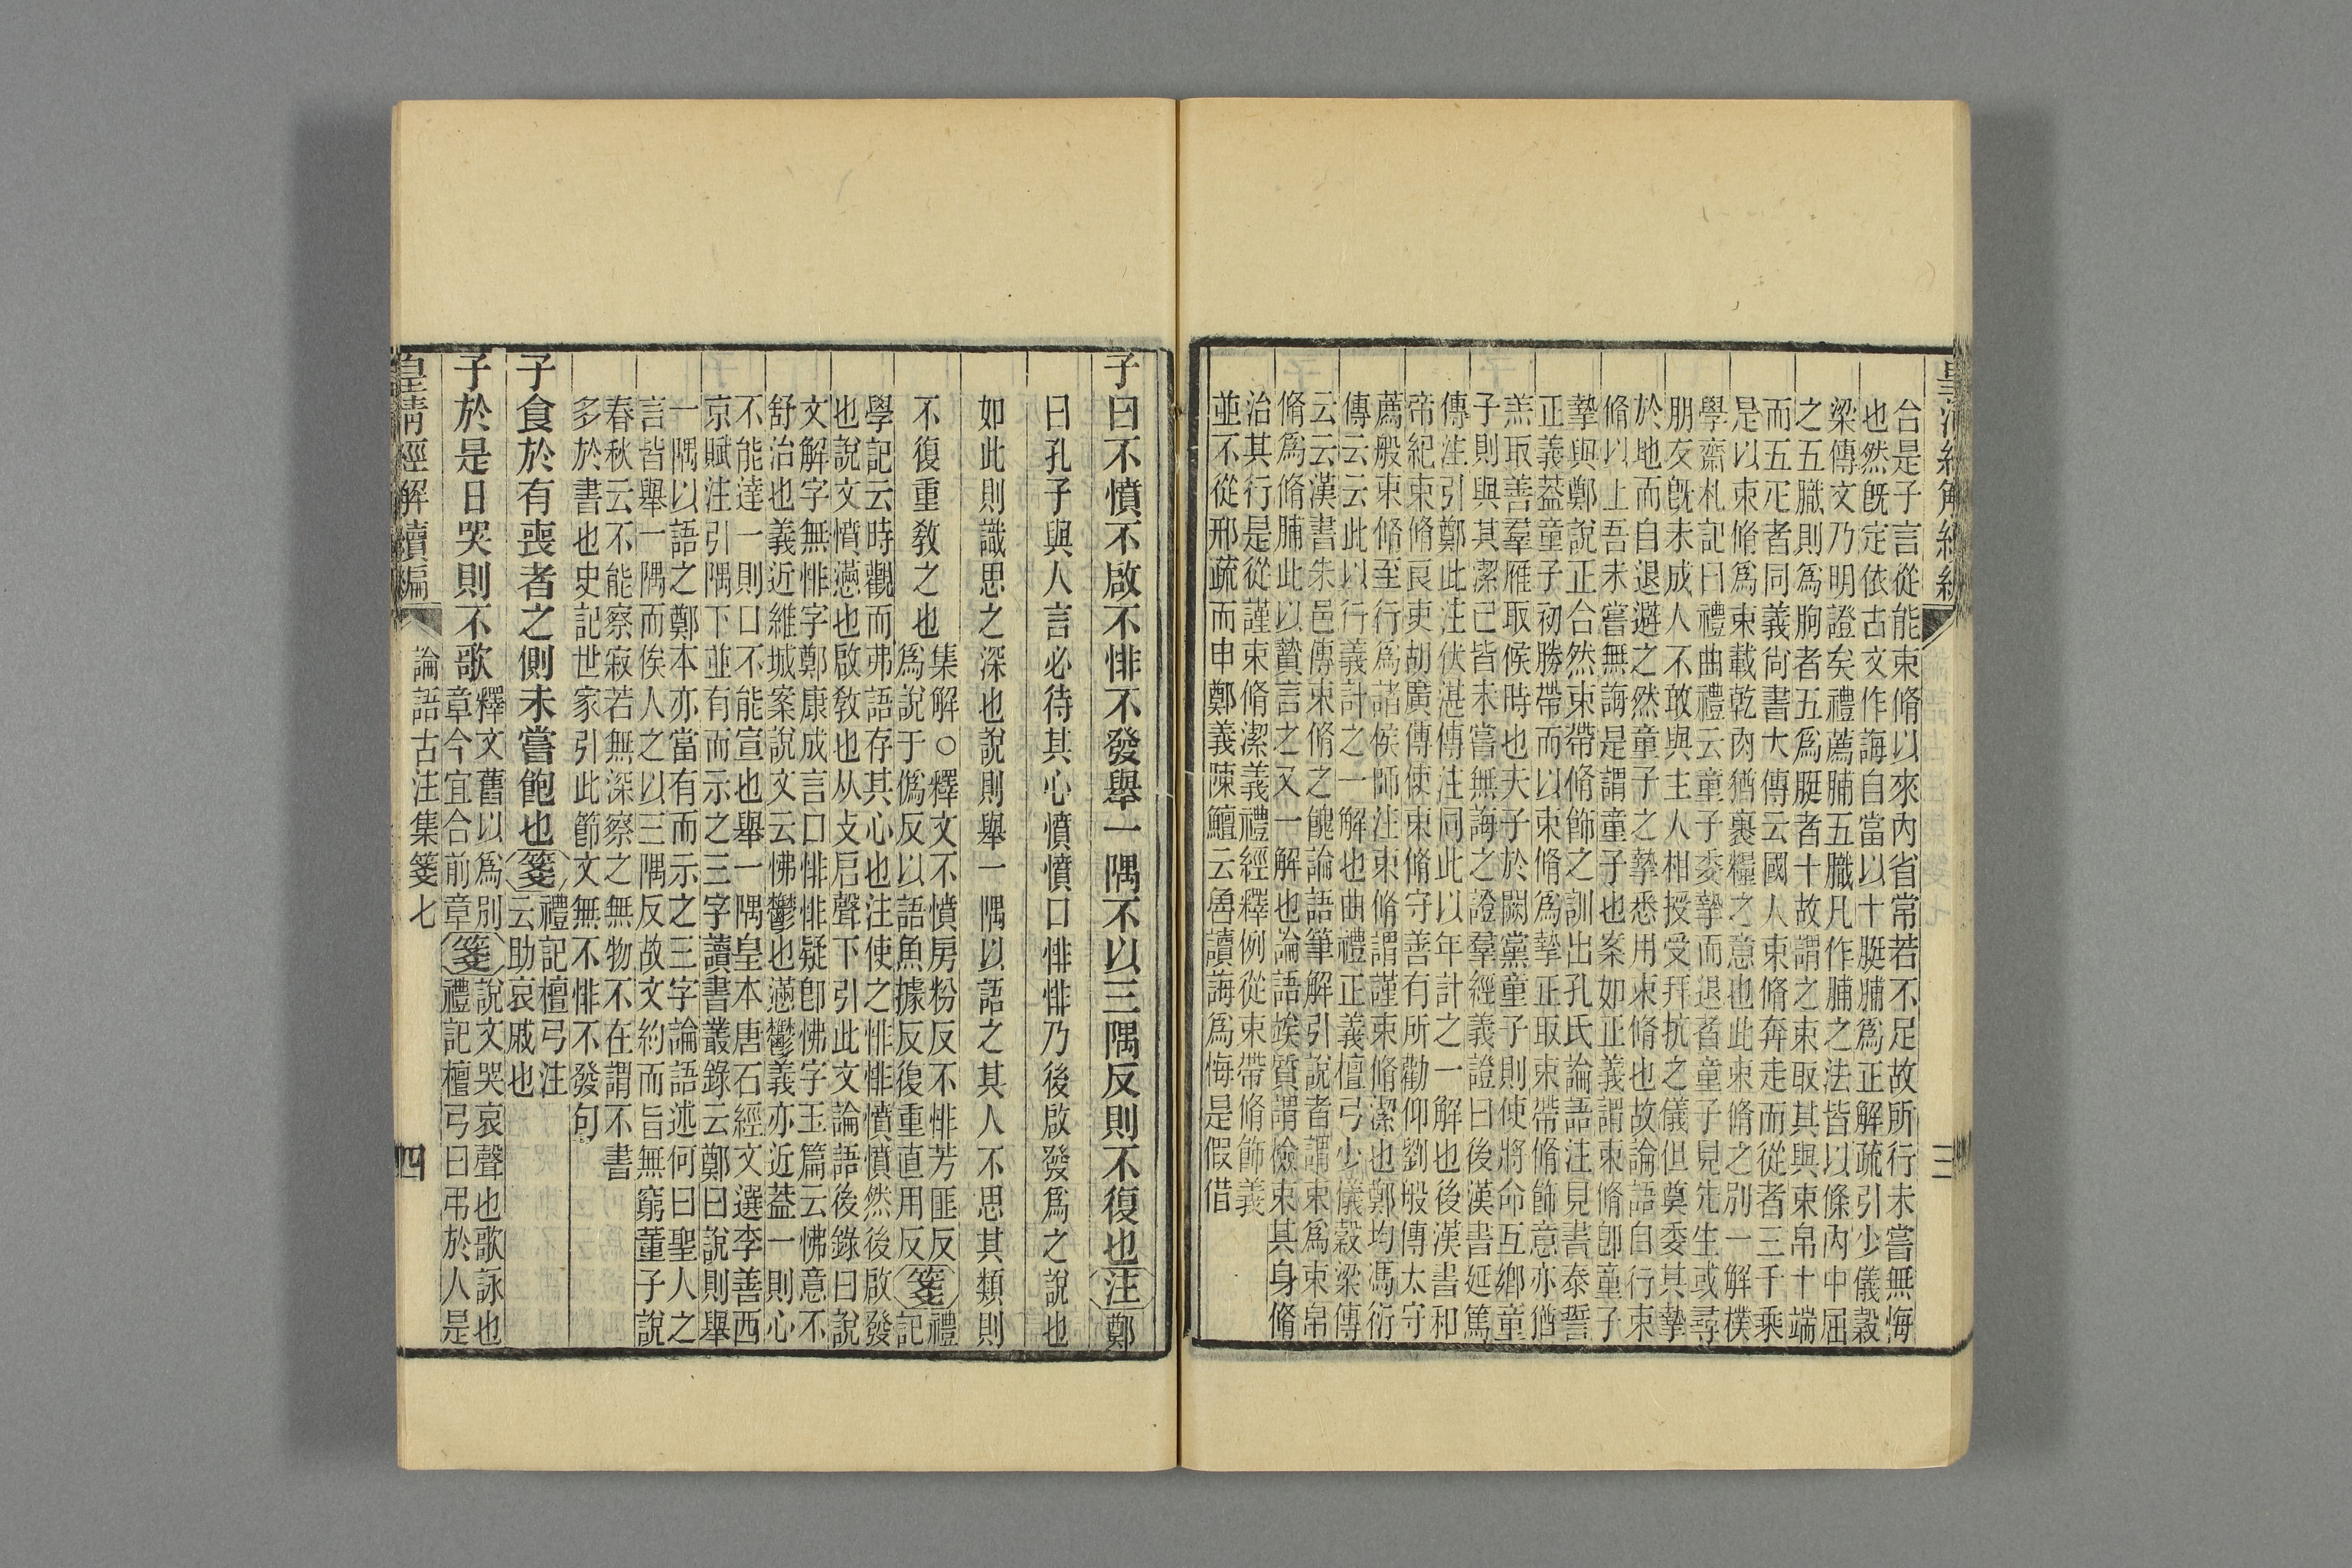 合是子言從能束脩以來內省常若不足故所行未嘗無悔
也然旣定依古文作誨自當以十脡脯爲正解疏引少儀穀
梁傳文乃明證矣禮薦脯五膱凡作脯之法皆以條內中屈
之五膱則爲朐者五爲脡者十故謂之束取其與束帛十端
而五疋者同義尙書大傳云國人束脩奔走而從者三千乘
是以束脩爲束載乾肉猶裹糧之意也此束脩之別一解樸
學齋札記曰禮曲禮云童子委摯而退者童子見先生或尋
朋友旣未成人不敢與主人相授受拜抗之儀但奠委其摯
於地而自退避之然童子之摯悉用束脩也故論語自行束
脩以上吾未嘗無誨是謂童子也案如正義謂束脩卽童子
摯與鄭說正合然束帶脩飾之訓出孔氏論語注見書泰誓
正義葢童子初勝帶而以束脩爲摯正取束帶脩飾意亦猶
羔取善羣雁取候時也夫子於闕黨童子則使將命互鄕童
子則與其潔己皆未嘗無誨之證羣經義證曰後漢書延篤
傳注引鄭此注伏湛傳注同此以年計之一解也後漢書和
帝紀束脩良吏胡廣傳使束脩守善有所勸仰劉般傳太守
薦般束脩至行爲諸侯師注束脩謂謹束脩潔也鄭均馮衍
傳云云此以行義計之一解也曲禮正義檀弓少儀穀梁傳
云云漢書朱邑傳束脩之餽論語筆解引說者謂束爲束帛
脩爲脩脯此以贄言之又一解也論語竢質謂檢束其身脩
治其行是從謹束脩潔義禮經釋例從束帶脩飾義
並不從邢疏而申鄭義陳鱣云魯讀誨爲悔是假借
三
子曰不憤不啟不悱不發舉一隅不以三隅反則不復也注鄭
曰孔子與人言必待其心憤憤口悱悱乃後啟發爲之說也
如此則識思之深也說則舉一隅以語之其人不思其類則
不復重敎之也集解○釋文不憤房粉反不悱芳匪反
爲說于僞反以語魚據反復重直用反箋禮
記
學記云時觀而弗語存其心也注使之悱悱憤憤然後啟發
也說文憤懣也啟敎也从攴启聲下引此文論語後錄曰說
文解字無悱字鄭康成言口悱悱疑卽怫字玉篇云怫意不
舒治也義近維城案說文云怫鬱也懣鬱義亦近葢一則心
不能達一則口不能宣也舉一隅皇本唐石經文選李善西
京賦注引隅下並有而示之三字讀書叢錄云鄭曰說則舉
一隅以語之鄭本亦當有而示之三字論語述何曰聖人之
言皆舉一隅而俟人之以三隅反故文約而旨無窮董子說
春秋云不能察寂若無深察之無物不在謂不書
多於書也史記世家引此節文無不悱不發句
子食於有喪者之側未嘗飽也箋禮記檀弓注
云助哀戚也
子於是日哭則不歌釋文舊以爲別
章今宜合前章箋說文哭哀聲也歌詠也
禮記檀弓曰弔於人是
皇淸經解續編
論語古注集箋七
四